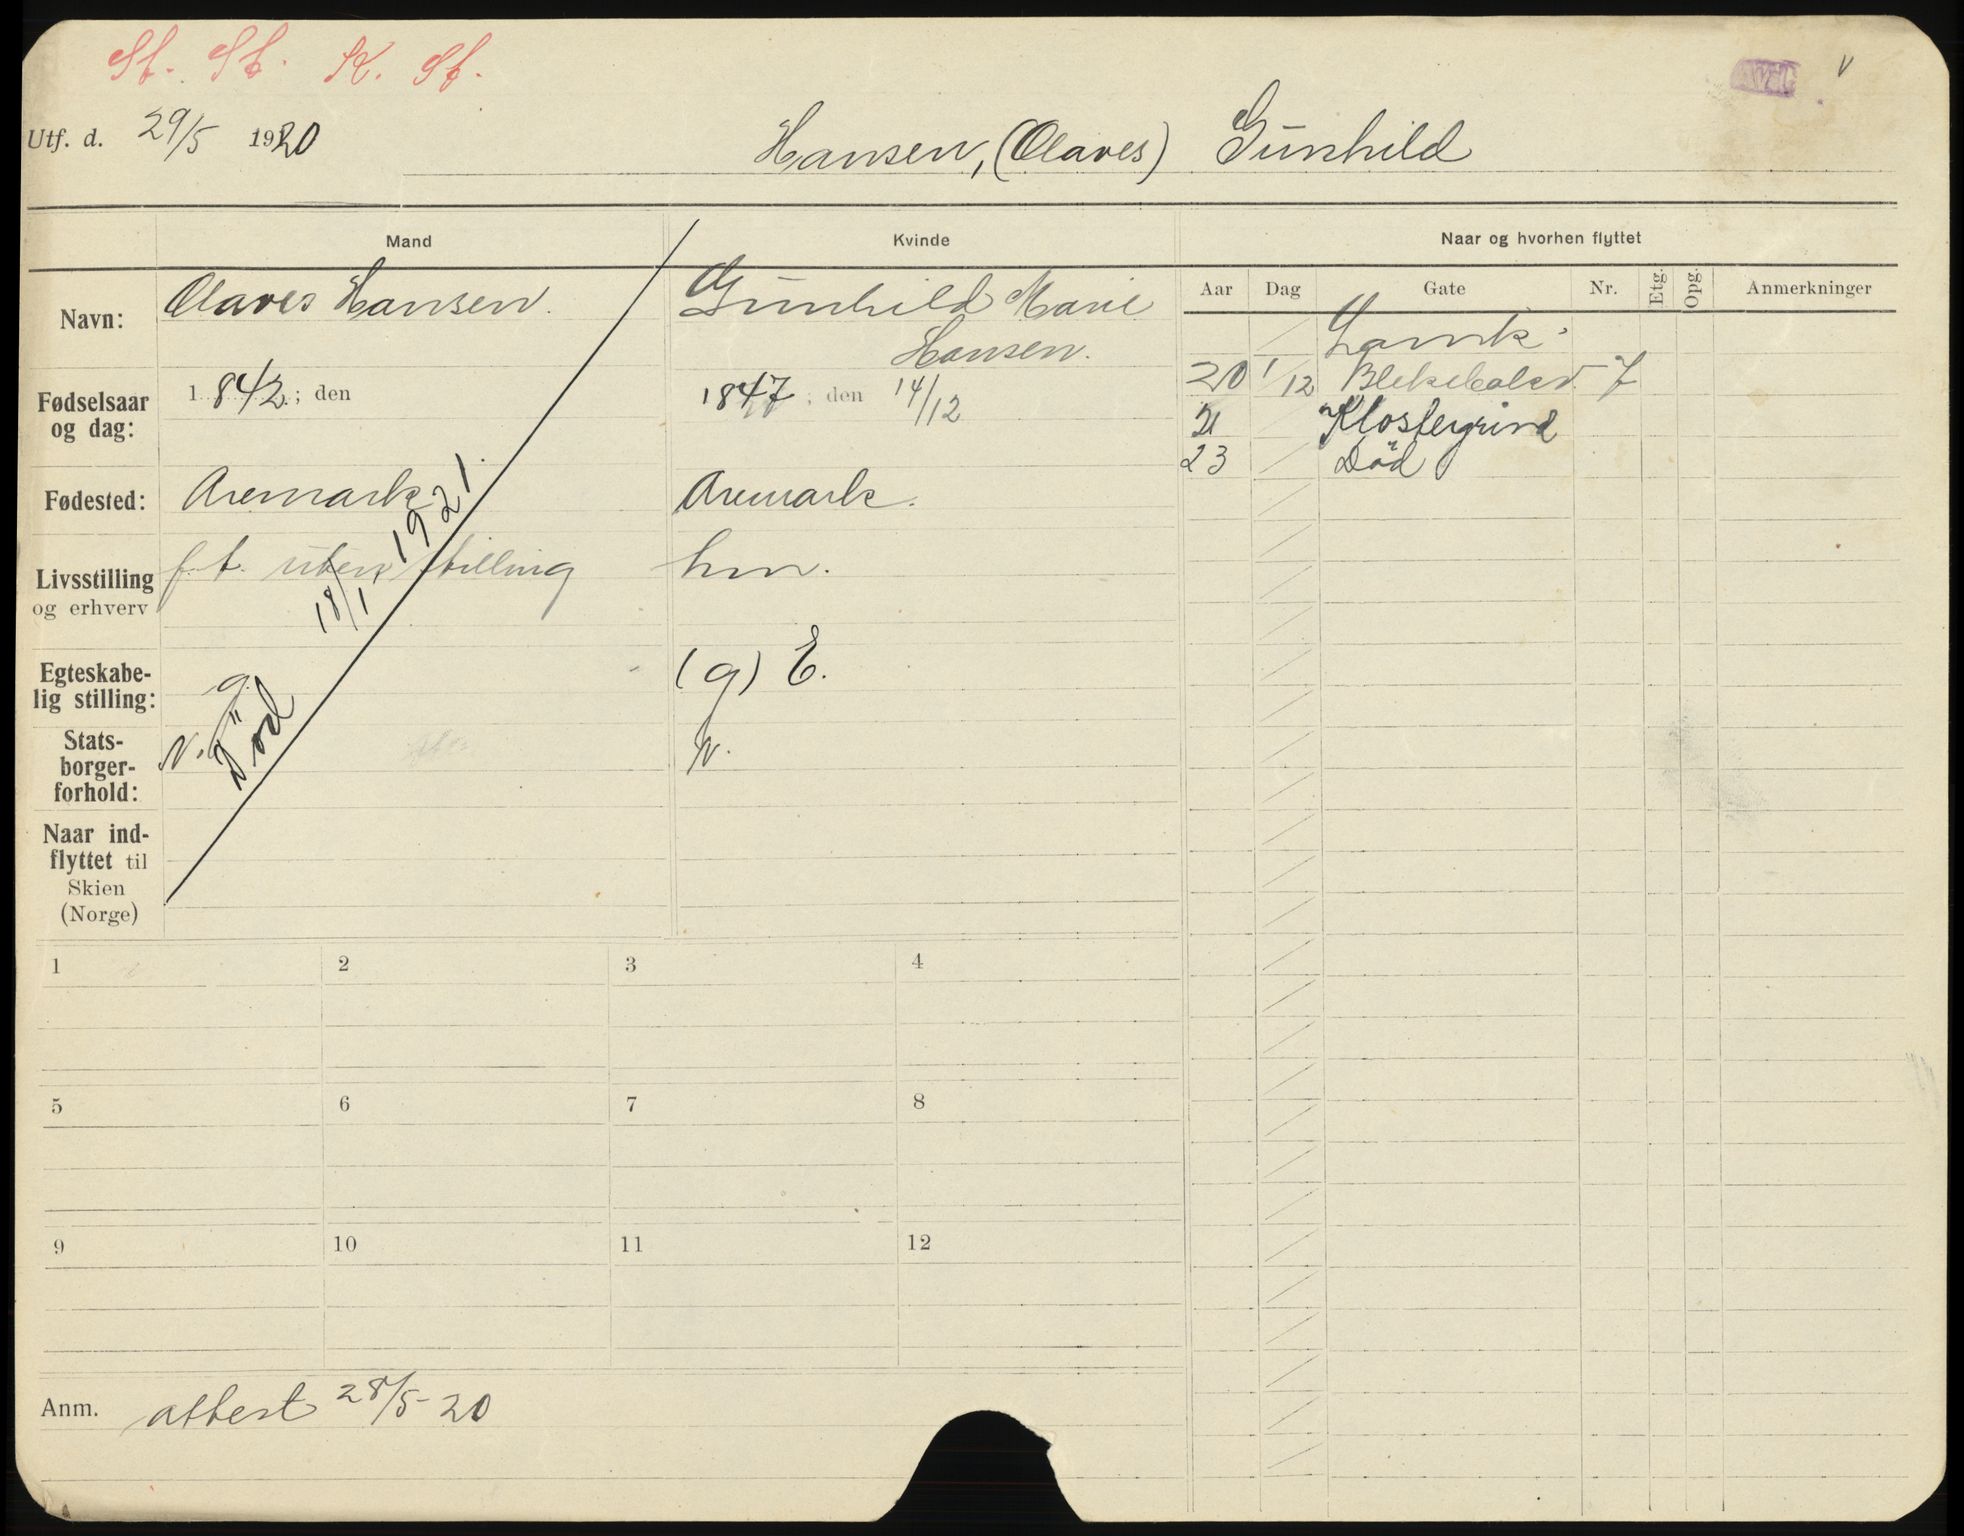 St. St. K. St.
Avd. v
Utf. d. 29/5 1920
Hansen, (Olaves) Gunhild
Mand Kvinde Naar og hvorhen flyttet
Aar Dag Gate Nr. Etg. Opg. Anmerkninger
Navn: Olaves Hansen. Gunhild Marie
Hansen.
Fødselsaar og dag: 1842; den 1847; den 14/12
Fødested: Aremark Aremark.
Livsstilling og erhverv f. t. uten stilling hm.
Egteskabe-
lig stilling: g. (g) E.
Stats-
borger-
forhold: N. N.
Død 18/1 1921.
Naar ind-
flyttet til
Skien
(Norge)
20 1/12 7
21 Klostergrind
23 Død
1 2 3 4
5 6 7 8
9 10 11 12
Anm. attest 28/5-20